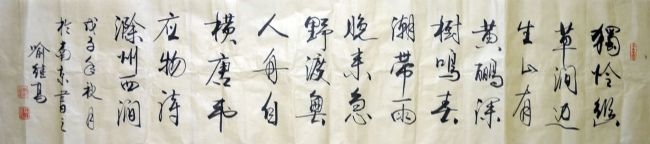 獨怜幽
草澗边
生上有
黄鹂深
樹鳴春
潮带雨
晚来急
野渡無
人舟自
横唐韦
应物诗
滁州西澗
戊子年秋月
於南京書之
喻继高